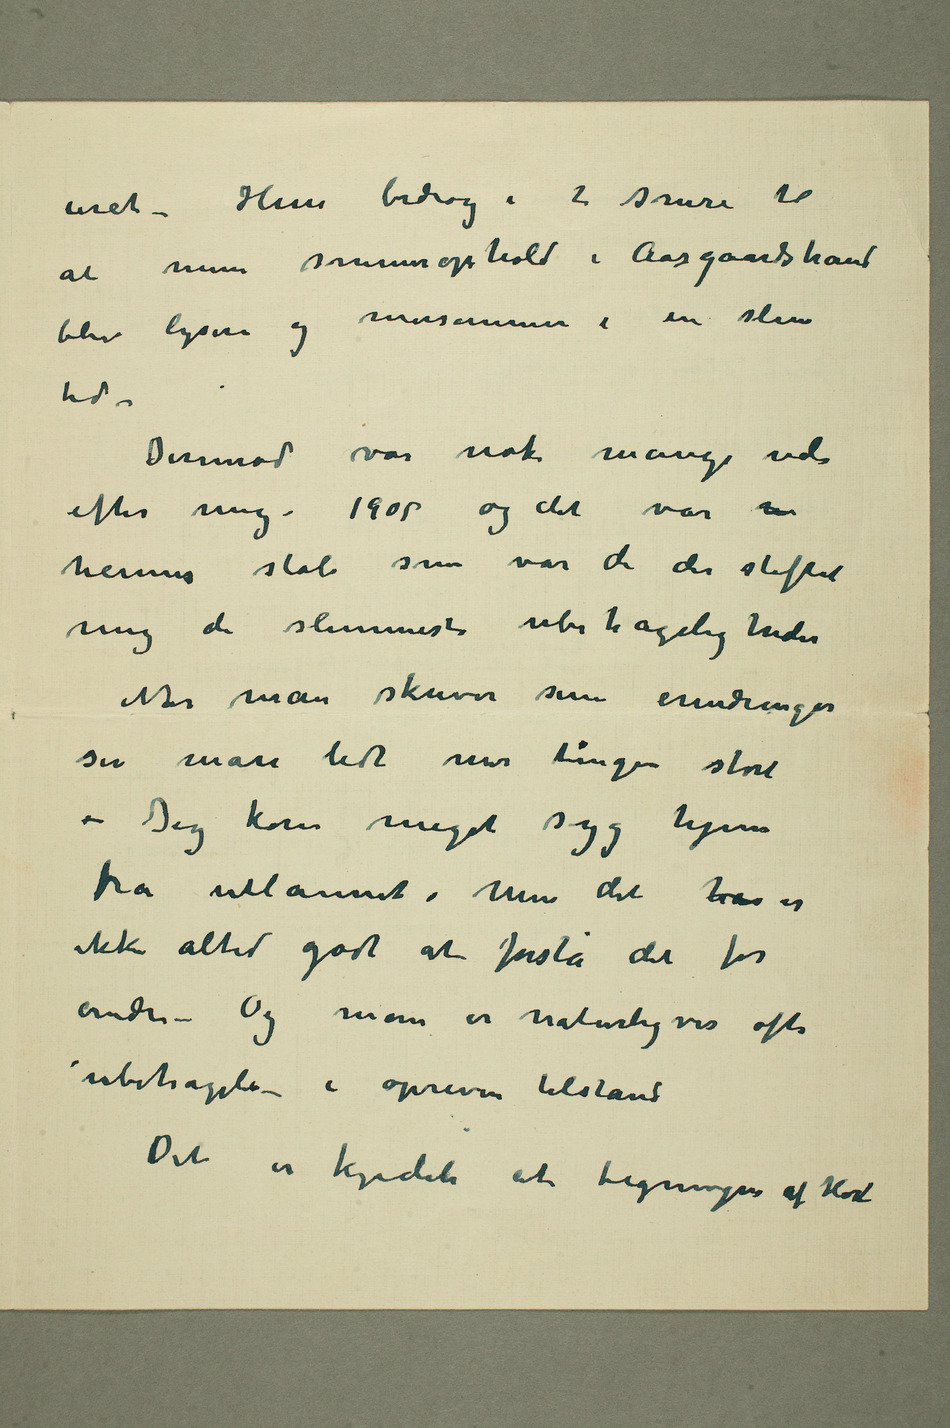 uret – Hun bidrog i 2 somre til
at min sommerophold i Aasgaardstrand
blev lysere og morsommere i en slem
tid –
Derimod var nok mange ude
efter mig – 1905 og det var
hennes stab som var de der stiftet
mig de slemmeste ubehageligheder
Når man skriver sine erindringer
ser man lidt mer tingen stort
– Jeg kom meget syg hjem
fra utlannet. Men det har er
ikke altid godt at forstå det for
andre – Og man er naturligvis ofte
ubehagelig – i opreven tilstand
Det er kjedeli at tegningen af